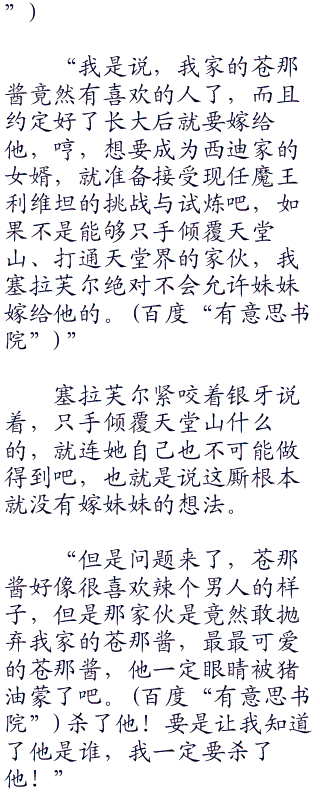 ”)
“我是说，我家的苍那
酱竟然有喜欢的人了，而且
约定好了长大后就要嫁给
他，哼，想要成为西迪家的
女婿，就准备接受现任魔王
利维坦的挑战与试炼吧，如
果不是能够只手倾覆天堂
山、打通天堂界的家伙，我
塞拉芙尔绝对不会允许妹妹
嫁给他的。(百度“有意思书
院”)”
塞拉芙尔紧咬着银牙说
着，只手倾覆天堂山什么
的，就连她自己也不可能做
得到吧，也就是说这厮根本
就没有嫁妹妹的想法。
“但是问题来了，苍那
酱好像很喜欢辣个男人的样
子，但是那家伙是竟然敢抛
弃我家的苍那酱，最最可爱
的苍那酱，他一定眼睛被猪
油蒙了吧。(百度“有意思书
院”)杀了他！要是让我知道
了他是谁，我一定要杀了
他！”